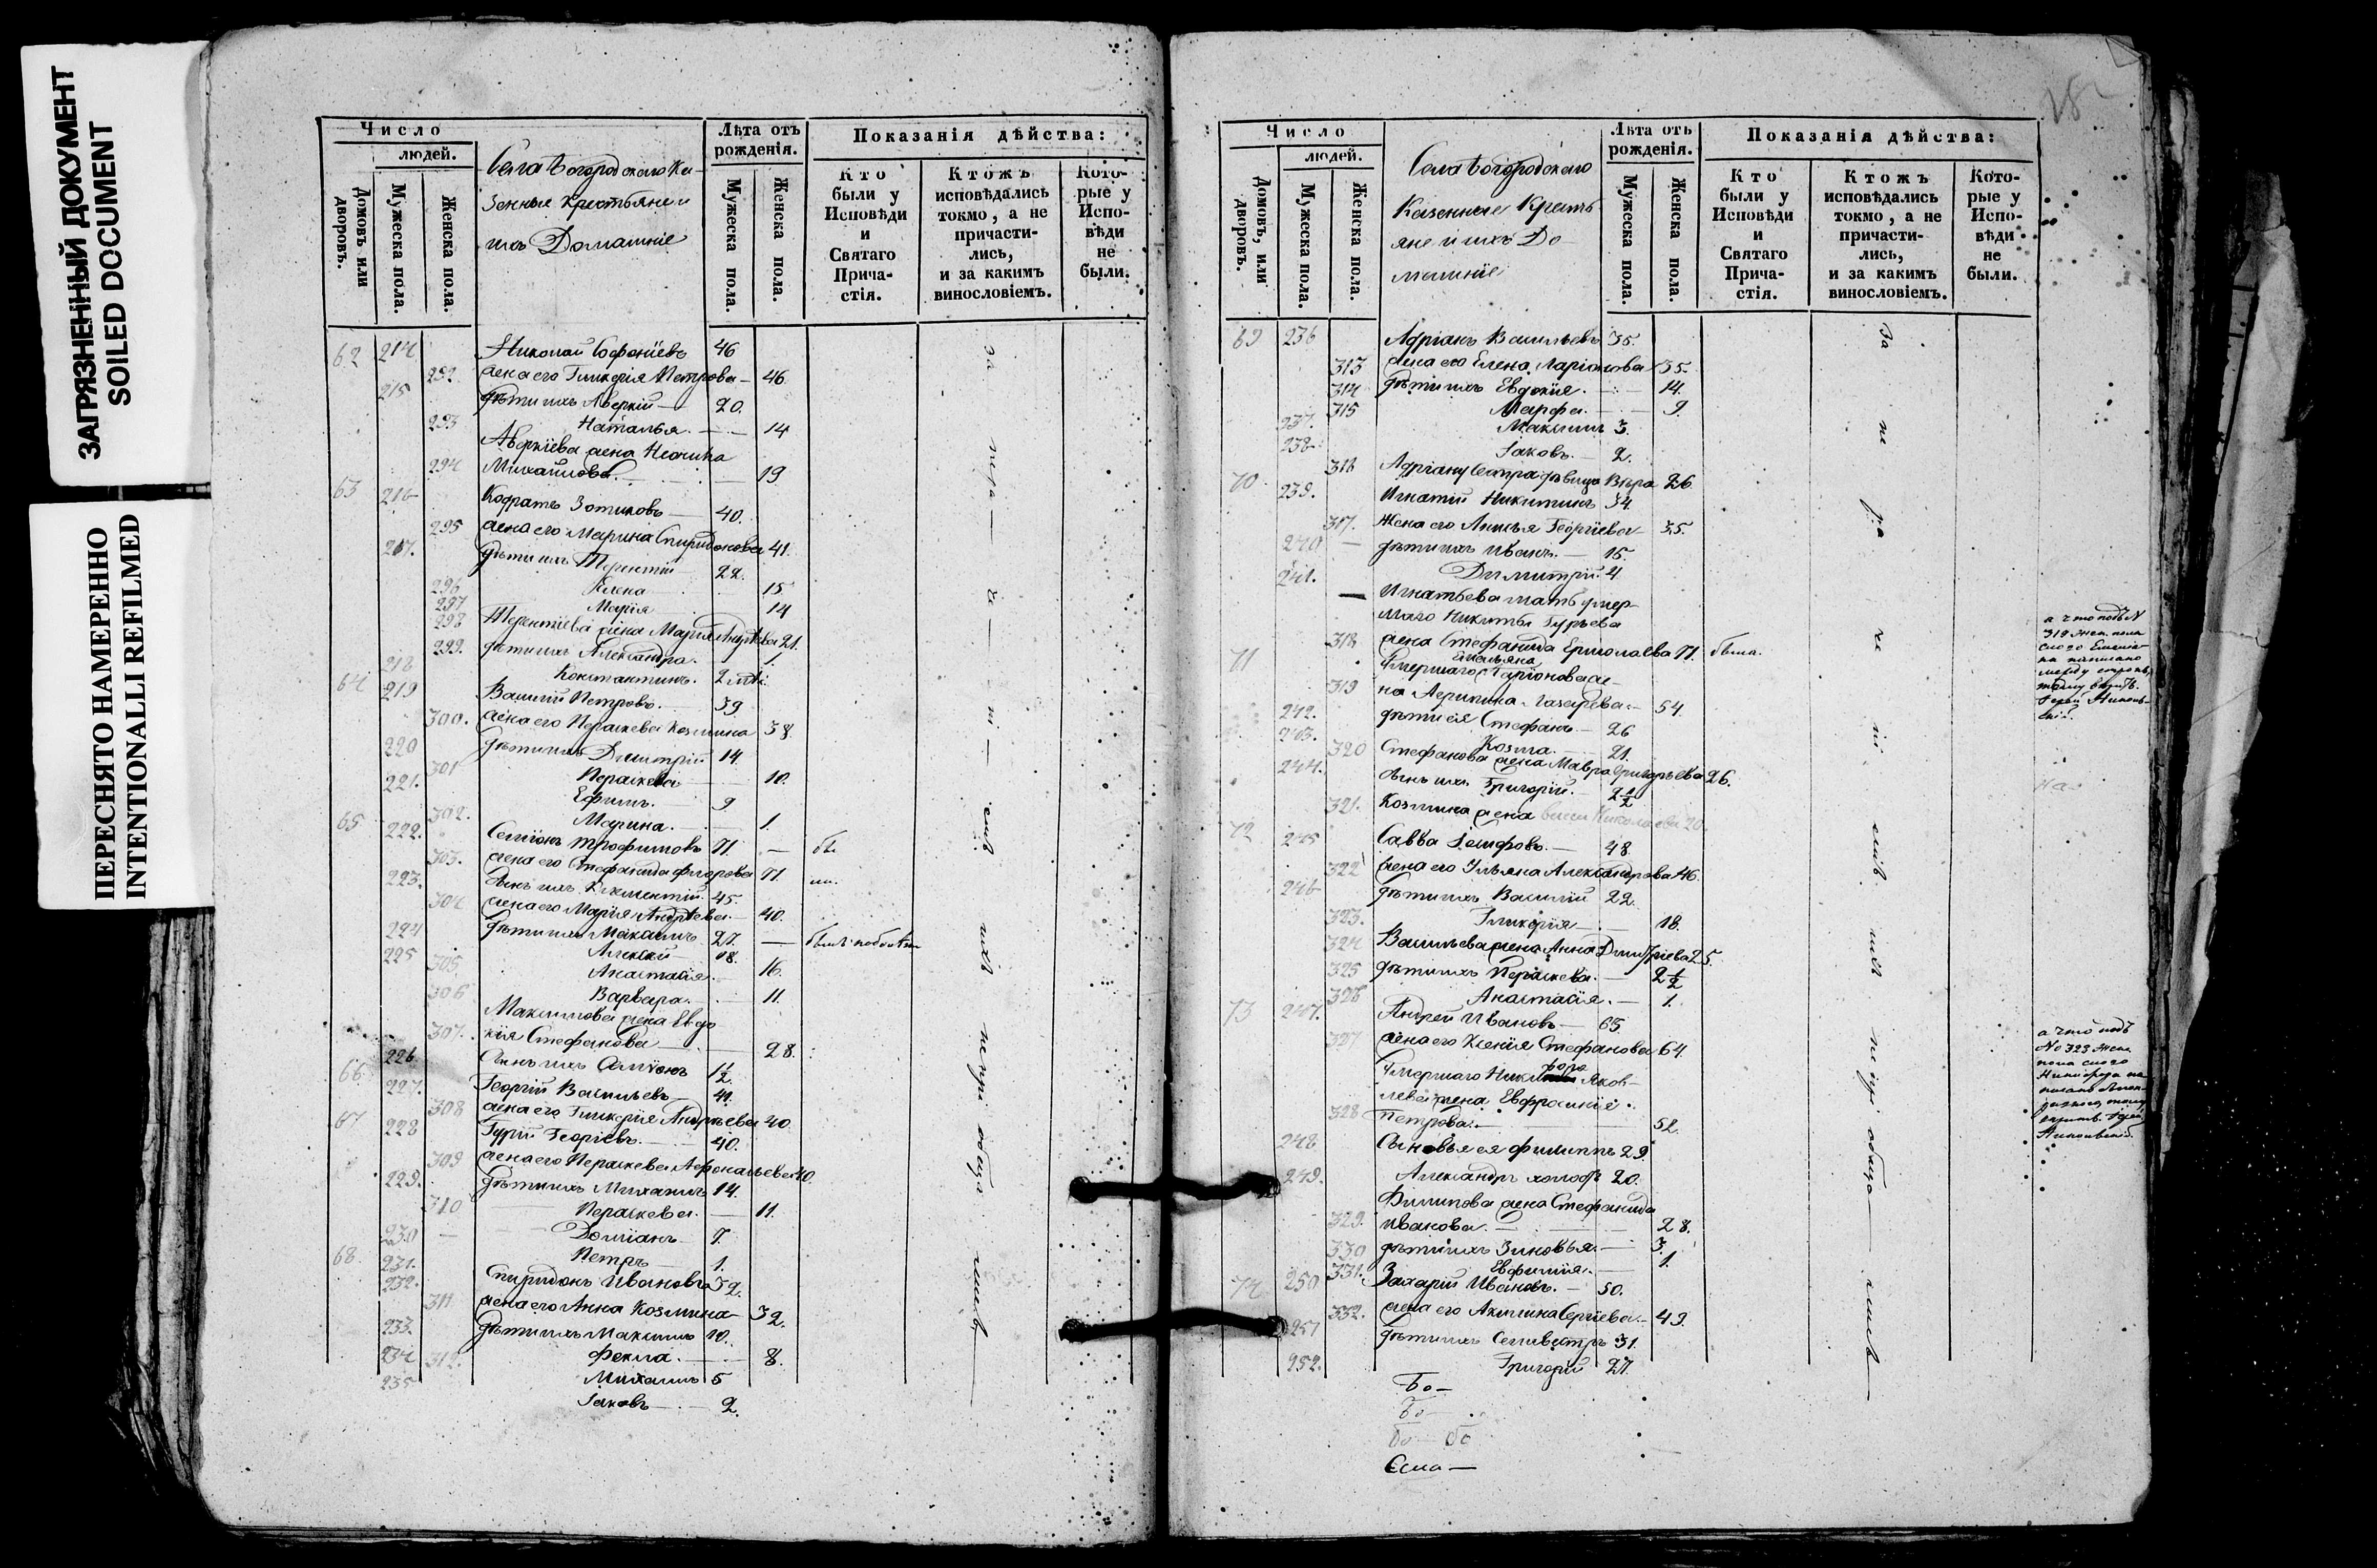 ЗАГРЯЗНЕННЫЙ ДОКУМЕНТ
SOILED DOCUMENT
ПЕРЕСНЯТО НАМЕРЕННО
INTENTIONALLI REFILMED
Число
людей.
Домовъ или дворовъ.
Мужеска пола.
Женска пола.
Села Богородскаго Ка-
зенные Крестьяне и
ихъ Домашніе
Лѣта отъ рожденія.
Мужеска пола.
Женска пола.
Показанія дѣйства:
Кто были у Исповѣди и Святаго Прича-стія.
Ктожъ исповѣдались токмо, а не причасти-лись, и за какимъ винословіемъ.
Кото-рые у Испо-вѣди не были.
62 214 Николай Софоніевъ 46
292 жена его Гликерія Петрова 46
215 дѣти ихъ Аверкій 20.
293 Наталья 14
Аверкіева жена
294 Михайлова 19
63 216 Кодратъ Зотиковъ 40.
295 жена его Марина Спиридонова 41.
217. дѣти ихъ Терентій 22.
296 Елена 15
297 Марія 14
298 Терентіева жена Марія Андреева 21.
299. дѣти ихъ Александра. 1.
218 Константинъ. 2
64 219 Василій Петровъ. 39
300. жена его Параскева Козмина 38
220 дѣти ихъ Димитрій 14.
301 Параскева 10.
221. Ефимъ. 9
302. Марина. 1.
65 222. Семіонъ Трофимовъ 71. бы
303. жена его Стефанида Фл 71. ли.
223. сынъ ихъ Климентій. 45.
304 жена его Марія Андреева 40.
224 дѣти ихъ Максимъ 27.
225 Алексій 18.
305. Анастасія. 16.
306 Варвара. 11.
Максимова жена Евдо
307. кія Стефанова 28.
226 Сынъ ихъ Симіонъ 1½
66 227. Георгій Васильевъ 41.
308 жена его Гликерія Андреева 40
67 228 Гурій Георгіевъ. 40.
309 жена его Параскева Афанасьева 40.
229. дѣти ихъ Михаилъ 14.
310 Параскева. 11.
230 Доміанъ 7.
231. Петръ 1.
68 232. Спиридонъ Ивановъ 32.
311 жена его Анна Козмина 32.
233. дѣти ихъ Максимъ 10.
312. Фекла. 8.
234 Михаилъ 5
235 Іаковъ 2.
за не ра че ні емъ ихъ не при общались
Число
людей.
Домовъ, или дворовъ.
Мужеска пола.
Женска пола.
Села Богородскаго
Казенные Кресть-
яне и ихъ До-
машніе
Лѣта отъ рожденія.
Мужеска пола.
Женска пола.
Показанія дѣйства:
Кто были у Исповѣди и Святаго Прича-стія.
Ктожъ исповѣдались токмо, а не причасти-лись, и за какимъ винословіемъ.
Кото-рые у Испо-вѣди не были.
69 236 Адріанъ Васильевъ 35.
313 жена его Елена Ларіонова 35.
314 дѣти ихъ Евдокія. 14.
315 Марфа. 9.
237. Максимъ 3.
238 Іаковъ. 2.
316 Адріану сестра дѣвица Вѣра 26
70 239. Игнатій Никитинъ 34.
317. Жена его Анисья Георгіева 35.
240 дѣти ихъ Иванъ. 15.
241. Димитрій 4
Игнатьева мать умер-
шаго Никиты Гурьева
318 жена Стефанида Ермолаева 71. была.
71 Умершаго Емельяна Ларіонова же-
319 на Агрипина Лазарева 54.
242. дѣти ея Стефанъ 26
243. Козма. 21.
320 Стефанова жена Мавра Григорьева 26.
244. сынъ ихъ Григорій. 2½
321. Козмина жена Николаева 20.
72 245 Савва Іосифовъ. 48.
322 жена его Ульяна Александрова 46.
246 дѣти ихъ Василій 22.
323. Гликерія 18.
324 Васильева жена Анна Дмитріева 25.
325 дѣти ихъ Параскева. 2½
326 Анастасія. 1.
73 247. Андрей Ивановъ 65.
327 жена его Ксенія Стефанова 64.
Умершаго Никифора Яков-
лева жена Евфросинія
328 Петрова. 52.
248 Сыновья ея Филиппъ 29.
249. Александръ холостъ 20.
Филипова жена Стефанида
329. Иванова. 28.
330 дѣти ихъ Зиновья. 3.
331. Евфимія. 1.
74 250 Захарій Ивановъ. 50.
332. жена его Акилина Сергіева 49.
251 дѣти ихъ Селивестръ 31.
252. Григорій 27.
Бо-
Бо-
бо- бо
За не ра че ні емъ ихъ не при обща лись
а что подъ N
319 жен. пола
слово Емелья-
на написано
между строкъ,
тому вѣрить.
а что подъ
No 323 жен.
пола слово
Никифора на-